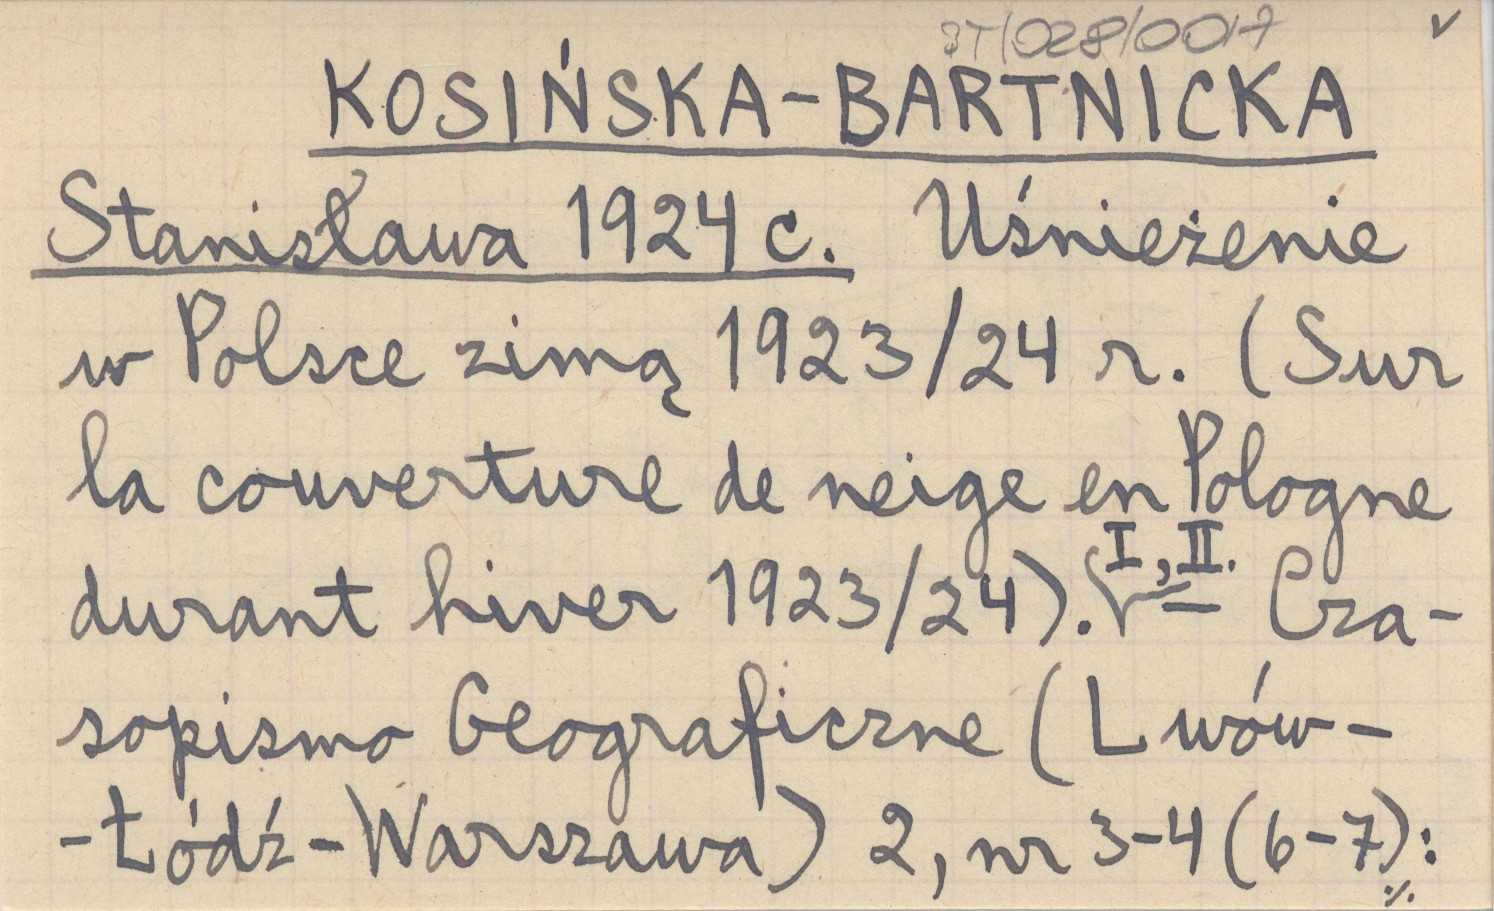 BT/028/0017 v
KOSIŃSKA-BARTNICKA
Stanisława 1924 c. Uśnieżenie
w Polsce zimą 1923/24 r. (Sur
la couverture de neige en Pologne
I, II.
durant hiver 1923/24). — Cza-
sopismo Geograficzne (Lwów-
-Łódź-Warszawa) 2, nr 3-4 (6-7):
./.